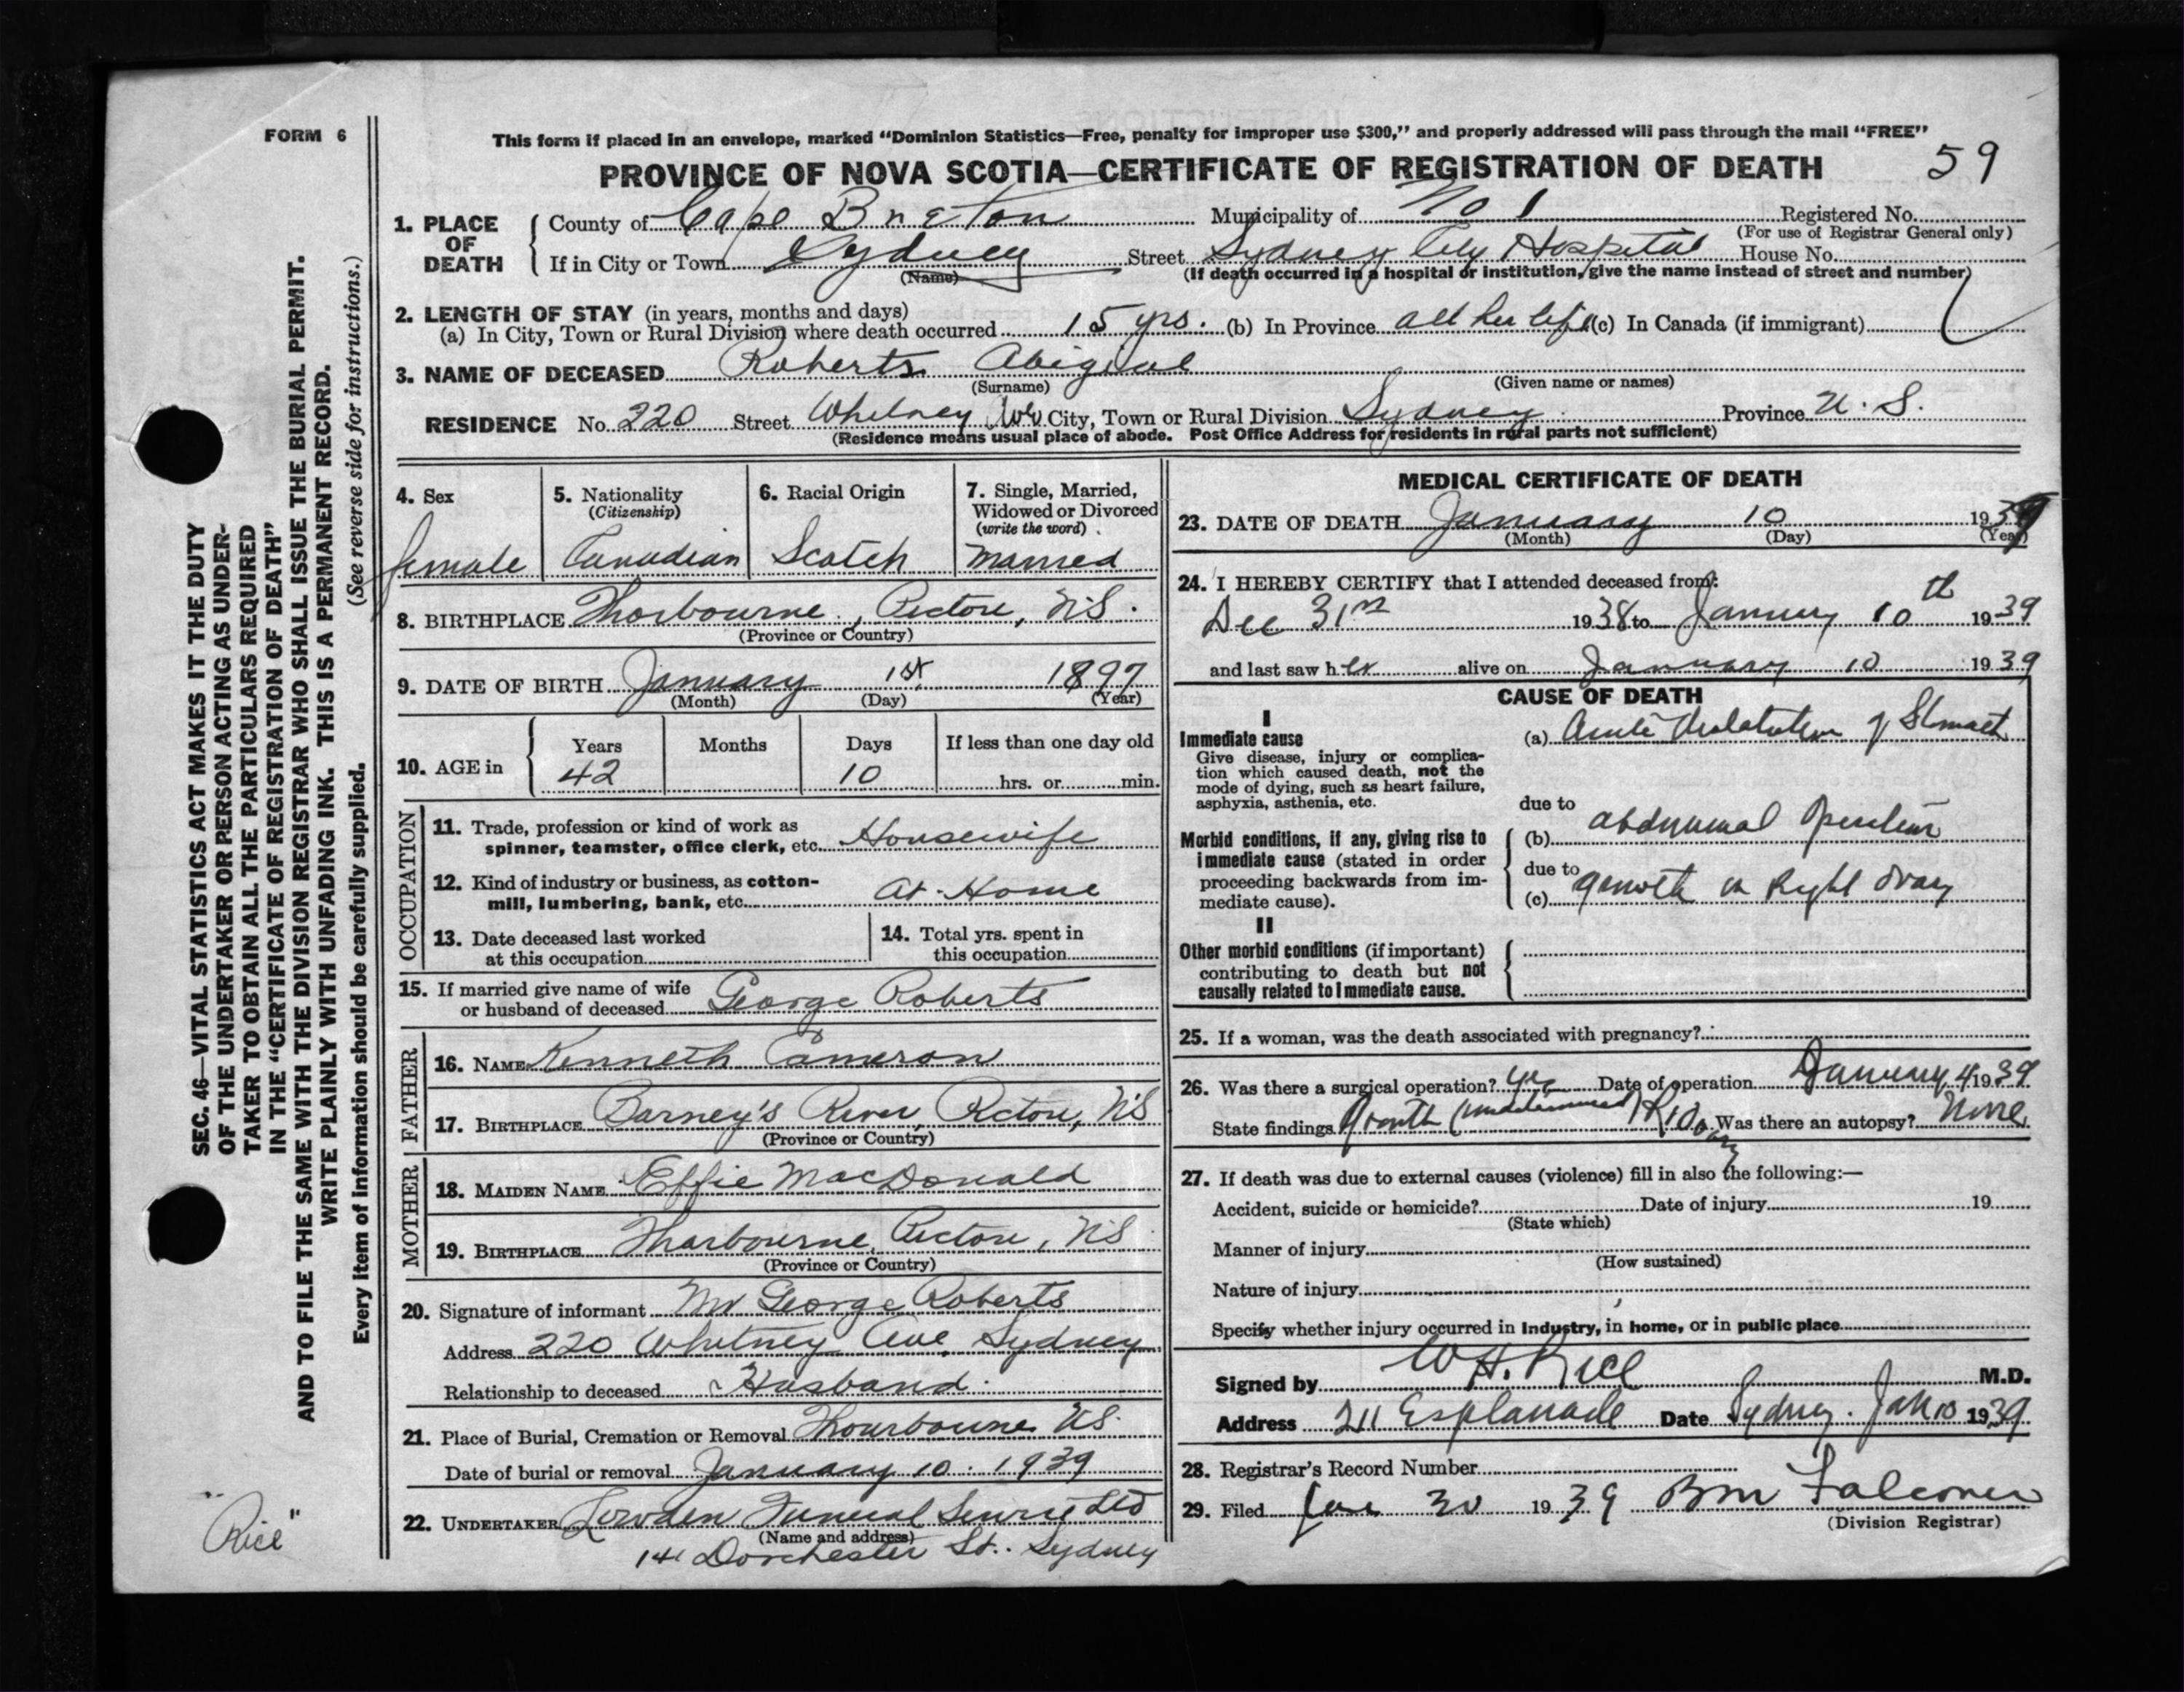 FORM 6
This form if placed in an envelope, marked “Dominion Statistics—Free, penalty for improper use $300,” and properly addressed will pass through the mail “FREE”
PROVINCE OF NOVA SCOTIA—CERTIFICATE OF REGISTRATION OF DEATH 59
1. PLACE OF DEATH
County of Cape Breton Municipality of No 1 Registered No.
(For use of Registrar General only)
If in City or Town Sydney Street Sydney City Hospital House No.
(Name) (If death occurred in a hospital or institution, give the name instead of street and number)
2. LENGTH OF STAY (in years, months and days)
(a) In City, Town or Rural Division where death occurred 15 yrs. (b) In Province all her life (c) In Canada (if immigrant)
3. NAME OF DECEASED Roberts Abigial
(Surname) (Given name or names)
RESIDENCE No. 220 Street Whitney Ave City, Town or Rural Division Sydney Province N.S.
(Residence means usual place of abode. Post Office Address for residents in rural parts not sufficient)
4. Sex
female
5. Nationality
(Citizenship)
Canadian
6. Racial Origin
Scotch
7. Single, Married,
Widowed or Divorced
(write the word)
Married
8. BIRTHPLACE Thorbourne, Pictou, N.S.
(Province or Country)
9. DATE OF BIRTH January 1st 1897
(Month) (Day) (Year)
10. AGE in
Years Months Days If less than one day old
42 10 hrs. or min.
OCCUPATION
11. Trade, profession or kind of work as
spinner, teamster, office clerk, etc. Housewife
12. Kind of industry or business, as cotton-
mill, lumbering, bank, etc. At Home
13. Date deceased last worked
at this occupation
14. Total yrs. spent in
this occupation
15. If married give name of wife
or husband of deceased George Roberts
FATHER
16. NAME Kenneth Cameron
17. BIRTHPLACE Barney's River, Pictou, N.S
(Province or Country)
MOTHER
18. MAIDEN NAME Effie MacDonald
19. BIRTHPLACE Tharbourne, Pictou, N.S
(Province or Country)
20. Signature of informant Mr George Roberts
Address 220 Whitney Ave, Sydney
Relationship to deceased Husband
21. Place of Burial, Cremation or Removal Thourbourne N.S.
Date of burial or removal January 10. 1939
22. UNDERTAKER Funeral Service Ltd
(Name and address)
141 Dorchester St. Sydney
MEDICAL CERTIFICATE OF DEATH
23. DATE OF DEATH January 10 1939
(Month) (Day) (Year)
24. I HEREBY CERTIFY that I attended deceased from:
Dec 31 1938 to January 10th 1939
and last saw her alive on January 10 1939
CAUSE OF DEATH
I
Immediate cause
Give disease, injury or complica-
tion which caused death, not the
mode of dying, such as heart failure,
asphyxia, asthenia, etc.
(a) Acute of Stomach
due to
Morbid conditions, if any, giving rise to
immediate cause (stated in order
proceeding backwards from im-
mediate cause).
(b) abdominal Operation
due to
(c) growth in Right Ovary
II
Other morbid conditions (if important)
contributing to death but not
causally related to immediate cause.
25. If a woman, was the death associated with pregnancy?
26. Was there a surgical operation? yes Date of operation January 4 1939
State findings Growth (undetermined) Rt Ovary Was there an autopsy? None
27. If death was due to external causes (violence) fill in also the following:—
Accident, suicide or homicide? Date of injury 19
(State which)
Manner of injury
(How sustained)
Nature of injury
Specify whether injury occurred in industry, in home, or in public place
Signed by W H. Rice M.D.
Address 211 Esplanade Date Sydney. Jan 10 1939
28. Registrar's Record Number
29. Filed Jan 30 1939 BM Falconer
(Division Registrar)
SEC. 46—VITAL STATISTICS ACT MAKES IT THE DUTY
OF THE UNDERTAKER OR PERSON ACTING AS UNDER-
TAKER TO OBTAIN ALL THE PARTICULARS REQUIRED
IN THE “CERTIFICATE OF REGISTRATION OF DEATH”
AND TO FILE THE SAME WITH THE DIVISION REGISTRAR WHO SHALL ISSUE THE BURIAL PERMIT.
WRITE PLAINLY WITH UNFADING INK. THIS IS A PERMANENT RECORD.
Every item of information should be carefully supplied. (See reverse side for instructions.)
"Rice"